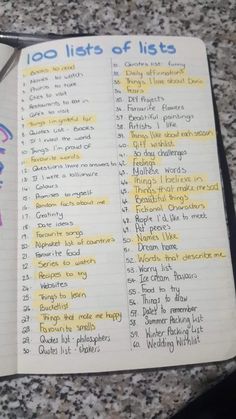 100 lists of lists
1. Books to read
2. Movies to watch
3. Photos to take
4. Cities to visit
5. Restaurants to eat in
6. Cafes to visit
7. Things I'm grateful for
8. Quotes List - Books
9. If I ruled the world
10. Things I'm proud of
11. Favourite words
12. Questions there no answers to
13. If I were a billionaire
14. Colours
15. Promises to myself
16. Random facts about me
17. Creativity
18. Date ideas
19. Favourite songs
20. Alphabet list of countries
21. Favourite food
22. Series to watch
23. Recipes to try
24. Websites
25. Things to learn
26. Bucketlist
27. Things that make me happy
28. Favourite smells
29. Quotes list - philosophers
30. Quotes list -
31. Quotes list - funny
32. Daily affirmations
33. Things I love about
34. Fears
35. DIY Projects
36. Favourite flowers
37. Beautiful paintings
38. Artists I like
39. Things I like about each season
40. Gift wishlist
41. 30 day challenges
42. Feelings
43. Maltese words
44. Things I believe in
45. Things that make me sad
46. Beautiful things
47. Fictional Characters
48. People I'd like to meet
49. Pet peeves
50. Names I like
51. Dream home
52. Words that describe me
53. Worry list
54. Ice Cream flavours
55. Food to try
56. Things to draw
57. Dates to remember
58. Summer Packing List
59. Winter Packing List
60. Wedding Wishlist